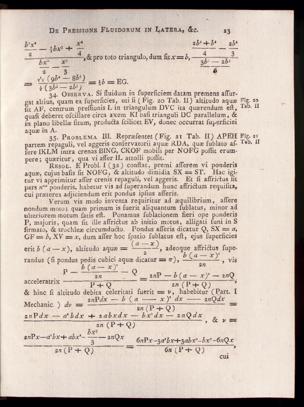 DE PRESSIONE FLUIDORUM IN LATERA, &c. 23
b²x² / 2 — ⅓bx³ + x⁴ / 4, & pro toto triangulo, dum fit x = b, 2b⁴ + b⁴ / 4 — 2b⁴ / 3
bx² / 2 — x³ / 3
3b³ — 2b³ / 6
= ½ (9b⁴ — 8b⁴) / ⅙ (3b³ — 2b³) = ½b = EG.
34. OBSERVA. Si fluidum in superficiem datam premens assur-
gat altius, quam ea superficies, uti si (Fig. 20 Tab. II) altitudo aquæ
sit AF, centrum pressionis L in triangulum DVC ita quærendum est,
quasi deberet oscillare circa axem KI basi trianguli DC parallelum, &
in plano libellæ situm, producta scilicet EV, donec occurrat superficiei
aquæ in A.
Fig. 20
Tab. II
35. PROBLEMA III. Repræsentet (Fig. 21 Tab. II) APEH
partem repaguli, vel aggeris conservatorii aquæ RDA, quæ sublato af-
sere IKLM intra crenas BING, CKOF mobili per NOFG posset erum-
pere; quæritur, qua vi asser IL attolli possit.
Fig. 21
Tab. II
RESOL. E Probl. I (32) constat, premi asserem vi ponderis
aquæ, cujus basis sit NOFG, & altitudo dimidia SX = ST. Hac igi-
tur vi apprimitur asser crenis repaguli, vel aggeris. Et si affrictus sit
pars nma ponderis, habetur vis ad superandum hunc affrictum requisita,
cui præterea adjiciendum erit pondus ipsius asseris.
Verum vis modo inventa requiritur ad æquilibrium, assere
nondum moto: quam primum is fuerit aliquantum sublatus, minor ad
ulteriorem motum satis est. Ponamus sublationem fieri ope ponderis
P, majoris, quam sit ille affrictus ab initio motus, alligati funi in S
firmato, & trochleæ circumducto. Pondus asseris dicatur Q, SX = a,
GF = b, XV = x, dum asser hoc spatio sublatus est, ejus superficies
erit b (a — x), altitudo aquæ = (a — x) / 2, adeoque affrictus supe-
randus (si pondus pedis cubici aquæ dicatur = n), b (a — x)² / 2n, vis
acceleratrix P — b (a — x)² / 2n — Q / P + Q = 2nP — b (a — x)² — 2nQ / 2n (P + Q),
& hinc si altitudo debita celeritati fuerit = v, habebitur (Part. I
Mechanic.) dv = 2nPdx — b (a — x)² dx — 2nQdx / 2n (P + Q) =
2nPdx — a²bdx + 2abxdx — bx²dx — 2nQdx / 2n (P + Q), & v =
2nPx — a²bx + abx² — bx³ / 3 — 2nQx / 2n (P + Q) = 6nPx — 3a²bx + 3abx² — bx³ — 6nQx / 6n (P + Q),
cui